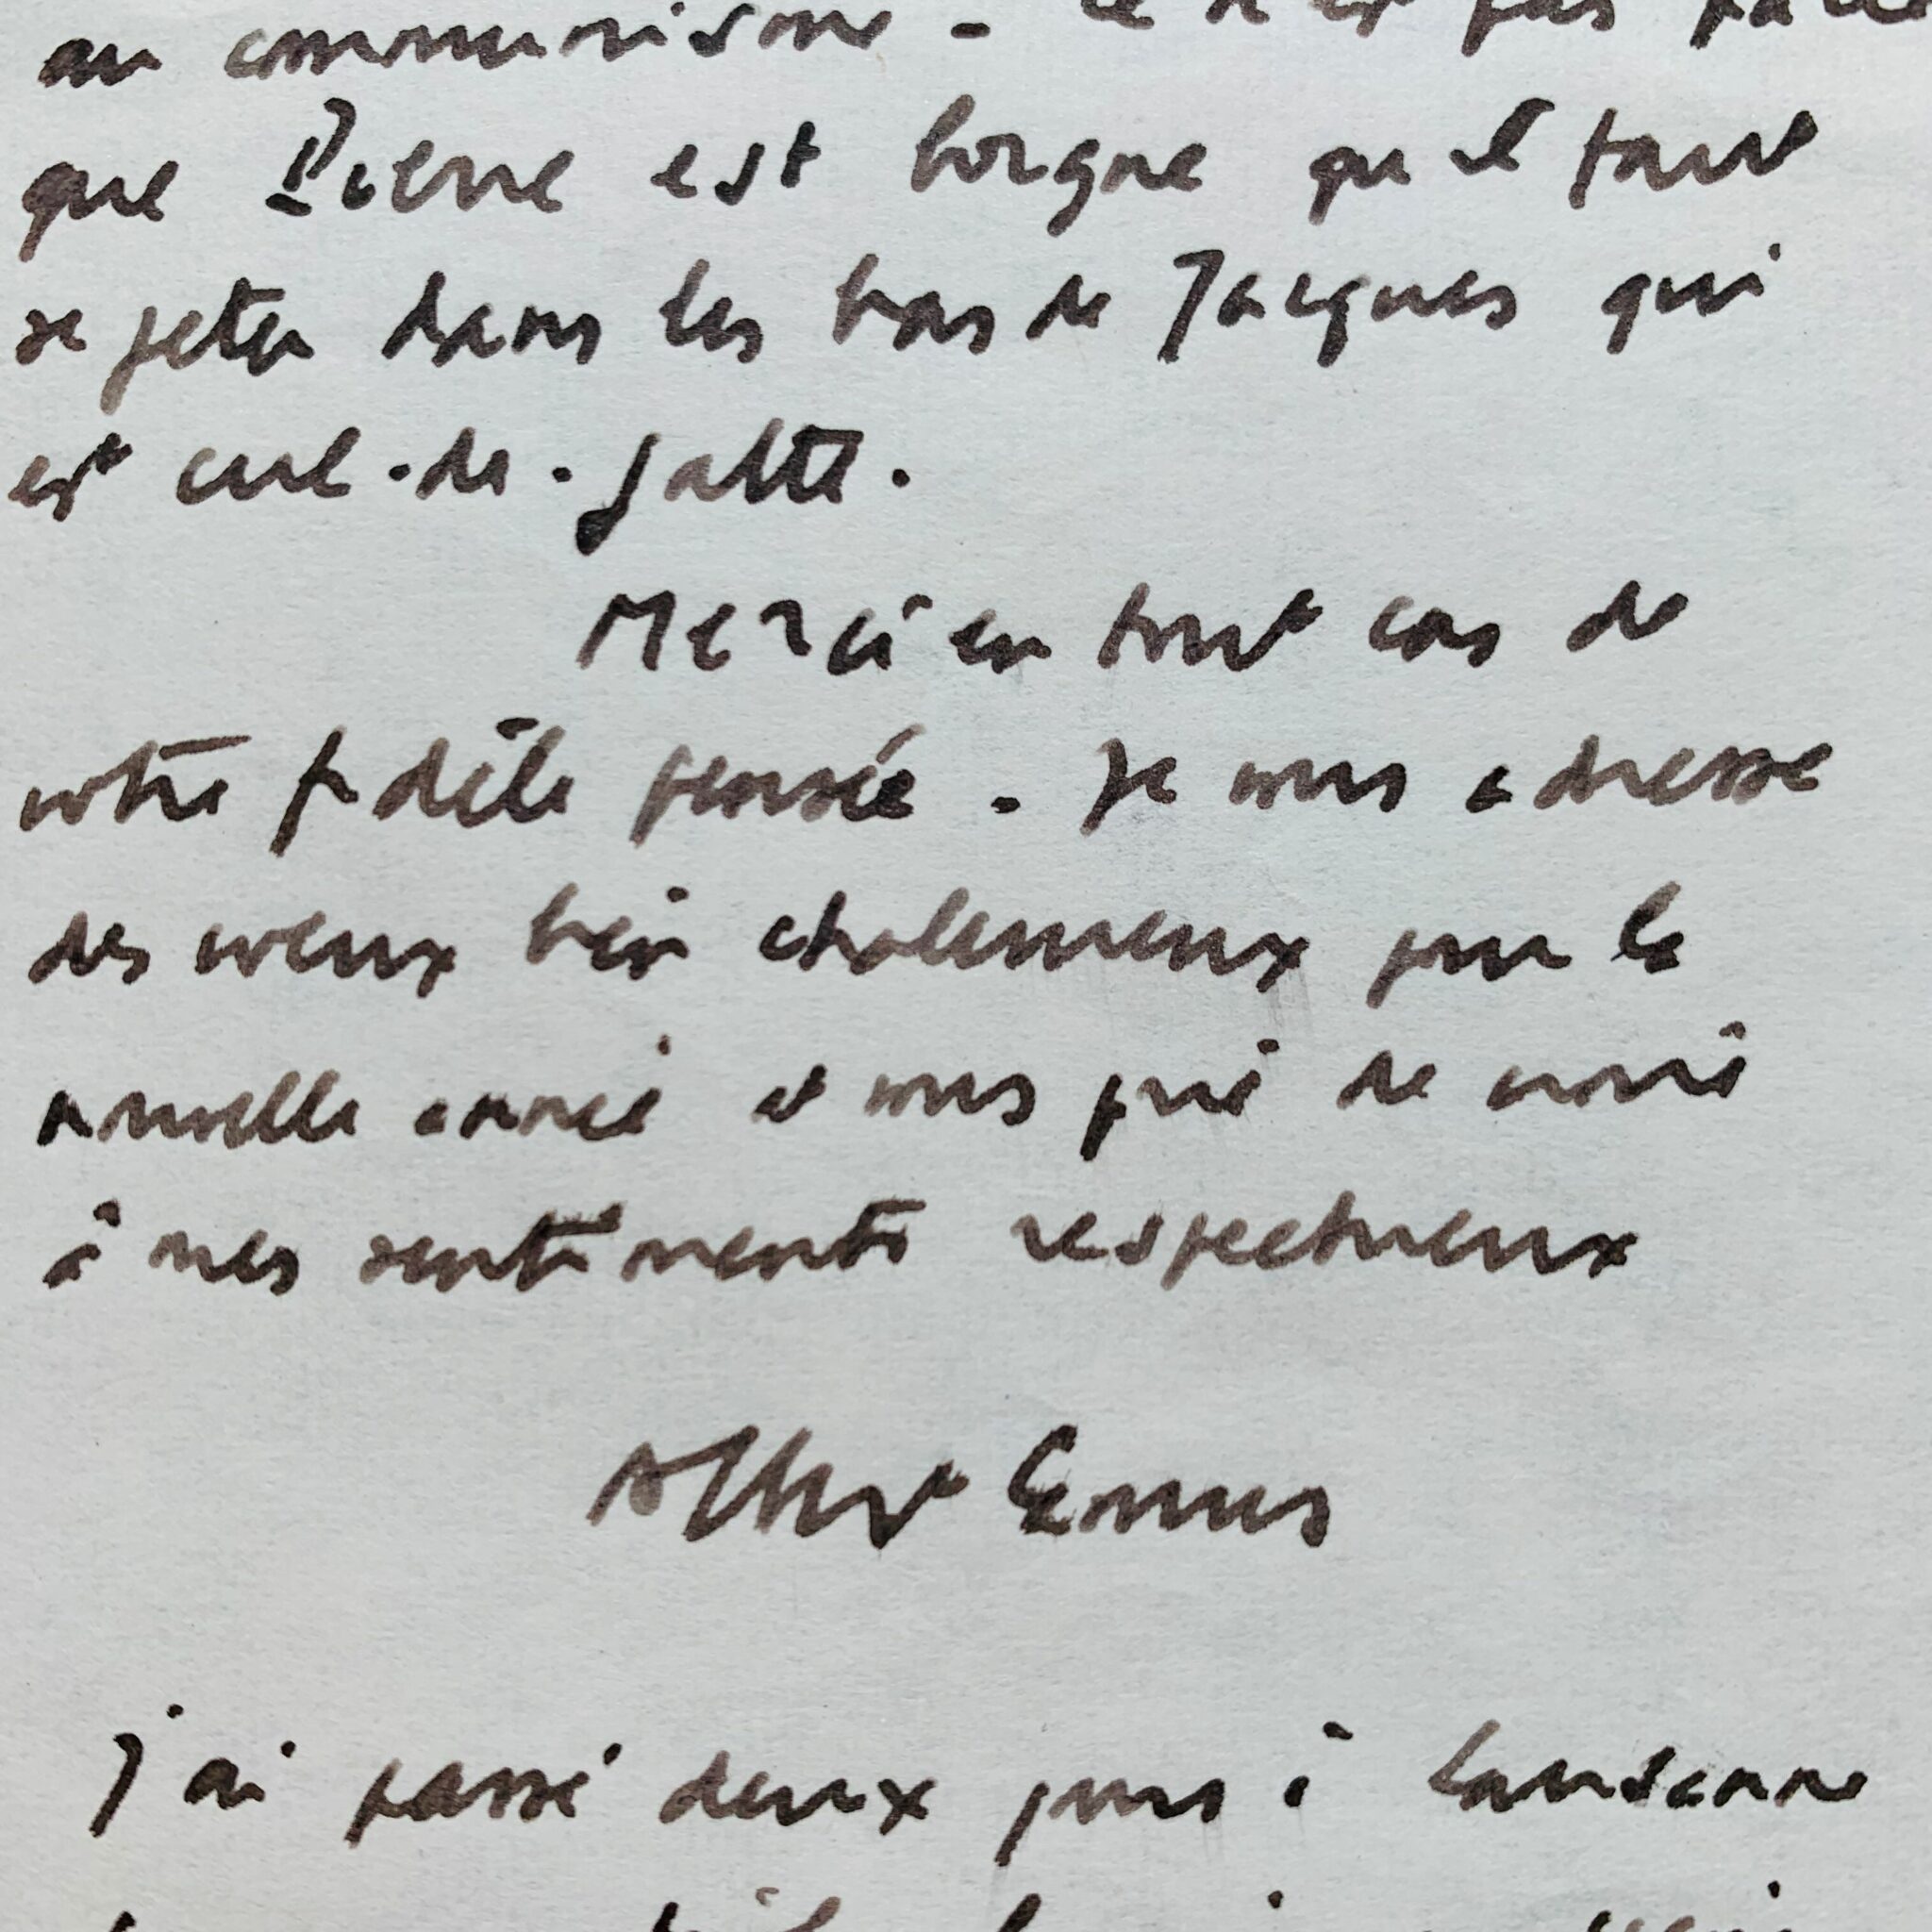 au communisme - Ce n'est pas parce
que Pierre est borgne qu'il faut
se jeter dans les bras de Jacques qui
est cul-de-jatte.
Merci en tout cas de
votre fidèle pensée. Je vous adresse
des voeux bien chaleureux pour la
nouvelle année et vous prie de croire
à mes sentiments respectueux
Albert Camus
J'ai passé deux jours à Lausanne